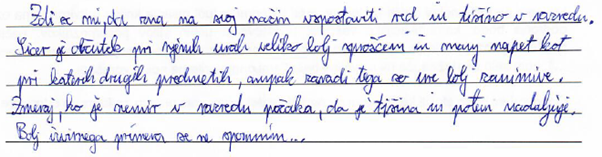 Zdi se mi, da zna na svoj način vzpostaviti red in tišino v razredu.
Sicer je občutek pri njenih urah veliko bolj sproščen in manj napet kot
pri katerih drugih predmetih, ampak zaradi tega so ure bolj zanimive.
Zmeraj, ko je nemir v razredu počaka, da je tišina in potem nadaljuje.
Bolj izvirnega primera se ne spomnim...